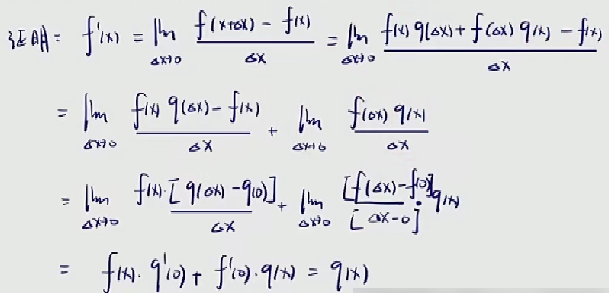 证明: f'(x) = lim_{Δx→0} \frac{f(x+Δx) - f(x)}{Δx} = lim_{Δx→0} \frac{f(x) g(Δx) + f(Δx) g(x) - f(x)}{Δx}
= lim_{Δx→0} \frac{f(x) g(Δx) - f(x)}{Δx} + lim_{Δx→0} \frac{f(Δx) g(x)}{Δx}
= lim_{Δx→0} \frac{f(x)·[g(Δx) - g(0)]}{Δx} + lim_{Δx→0} \frac{[f(Δx) - f(0)]}{[Δx - 0]}·g(x)
= f(x)·g'(0) + f'(0)·g(x) = g(x)